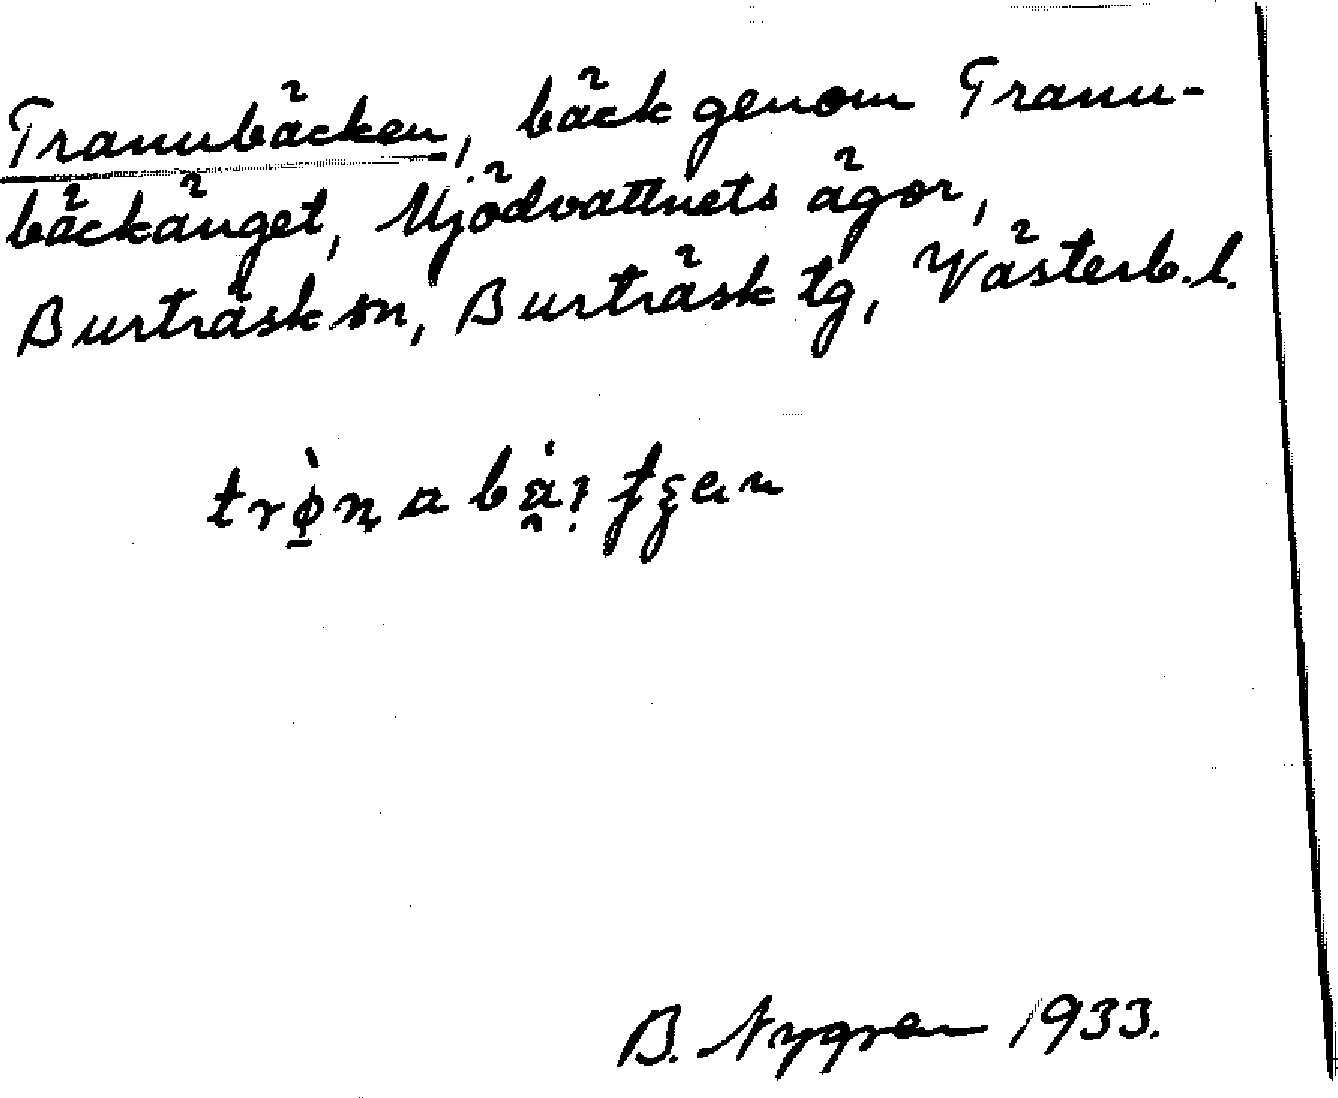 Tranubäcken, bäck genom Tranu-
bäckänget, Mjödvattnets ägor,
Burträsk sn, Burträsk tg, Västerb. l.
B. Nygren 1933.